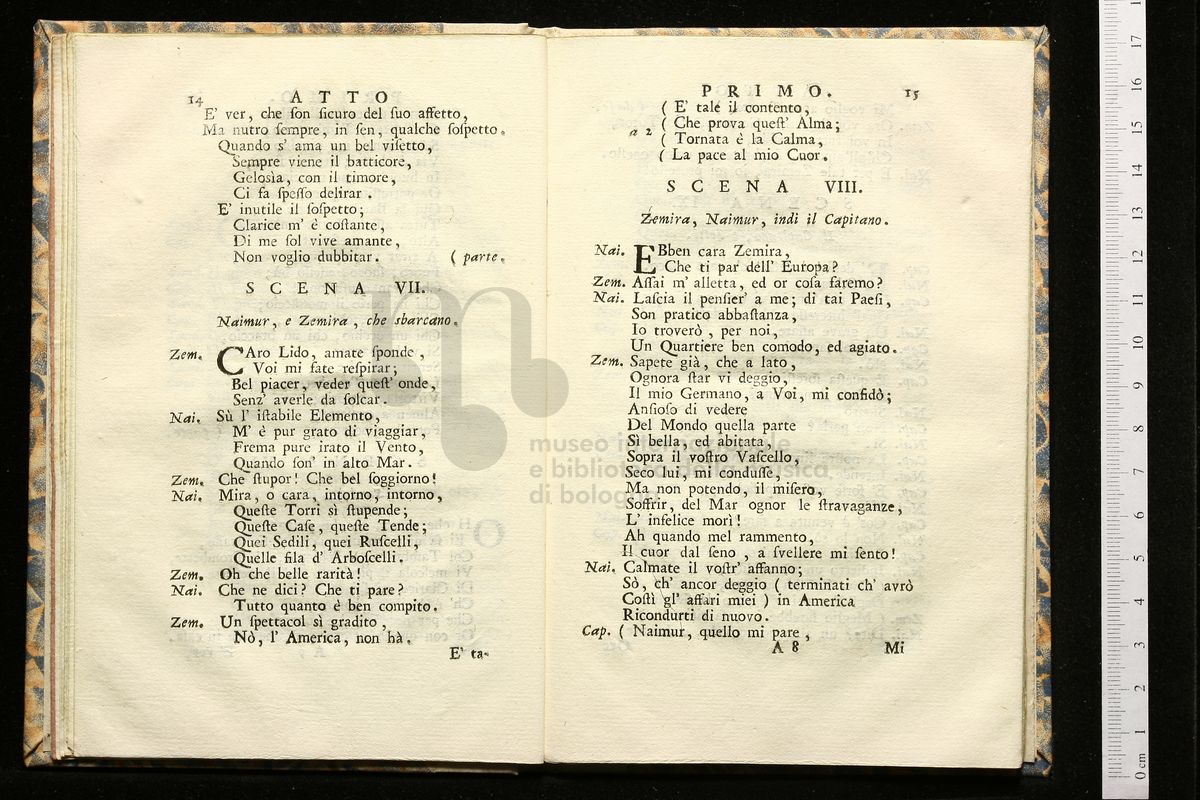 14 ATTO
E' ver, che ſon ſicuro del ſuo affetto,
Ma nutro ſempre, in ſen, qualche ſoſpetto.
Quando s' ama un bel viſetto,
Sempre viene il batticore,
Geloſia, con il timore,
Ci fa ſpeſſo delirar.
E' inutile il ſoſpetto;
Clarice m' è coſtante,
Di me ſol vive amante,
Non voglio dubbitar. ( parte.
SCENA VII.
Naimur, e Zemira, che sbarcano.
Zem. CAro Lido, amate ſponde,
Voi mi fate reſpirar;
Bel piacer, veder queſt' onde,
Senz' averle da ſolcar.
Nai. Sù l' iſtabile Elemento,
M' è pur grato di viaggiar,
Frema pure irato il Vento,
Quando ſon' in alto Mar.
Zem. Che ſtupor! Che bel ſoggiorno!
Nai. Mira, o cara, intorno, intorno,
Queſte Torri sì ſtupende;
Queſte Caſe, queſte Tende;
Quei Sedili, quei Ruſcelli,
Quelle fila d' Arboſcelli.
Zem. Oh che belle rarità!
Nai. Che ne dici? Che ti pare?
Tutto quanto è ben compito.
Zem. Un ſpettacol sì gradito,
Nò, l' America, non hà.
E' ta-
PRIMO. 15
( E' tale il contento,
a 2 ( Che prova queſt' Alma;
( Tornata è la Calma,
( La pace al mio Cuor.
SCENA VIII.
Zemira, Naimur, indi il Capitano.
Nai. EBben cara Zemira,
Che ti par dell' Europa?
Zem. Aſſai m' alletta, ed or coſa faremo?
Nai. Laſcia il penſier' a me; di tai Paeſi,
Son pratico abbaſtanza,
Io troverò, per noi,
Un Quartiere ben comodo, ed agiato.
Zem. Sapete già, che a lato,
Ognora ſtar vi deggio,
Il mio Germano, a Voi, mi confidò;
Anſioſo di vedere
Del Mondo quella parte
Sì bella, ed abitata,
Sopra il voſtro Vaſcello,
Seco lui, mi conduſſe,
Ma non potendo, il miſero,
Soffrir, del Mar ognor le ſtravaganze,
L' infelice morì!
Ah quando mel rammento,
Il cuor dal ſeno, a ſvellere mi ſento!
Nai. Calmate il voſtr' affanno;
Sò, ch' ancor deggio ( terminati ch' avrò
Coſtì gl' affari miei ) in America
Ricondurti di nuovo.
Cap. ( Naimur, quello mi pare,
A 8 Mi